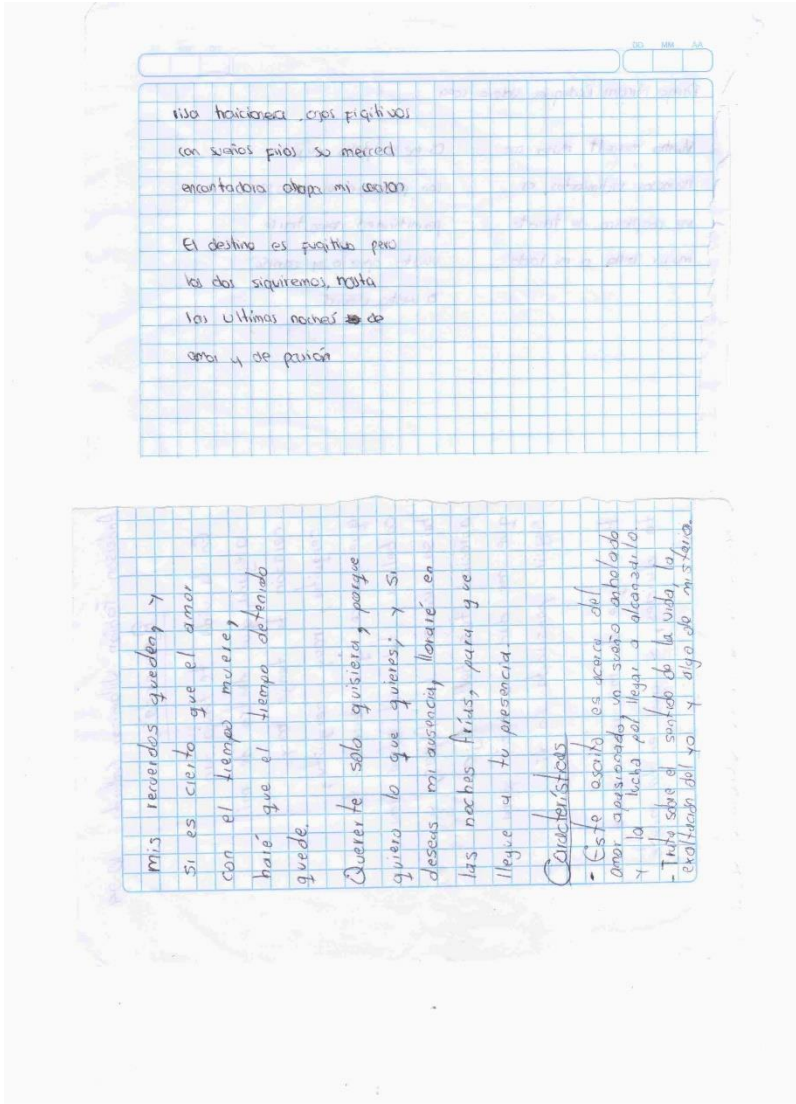 DD MM AA
risa traicionera, ojos figitivos
con sueños frios su merced
encantadora atrapa mi corazon
El destino es fugitivo pero
los dos siguiremos, hasta
las ultimas noches de
amor y de pasión
mis recuerdos queden, y
si es cierto que el amor
con el tiempo muere,
haré que el tiempo detenido
quede.
Quererte solo quisiera, porque
quiero lo que quieres; y si
deseas mi ausencia, lloraré en
las noches frías, para que
llegue a tu presencia.
Características
• Este escrito es acerca del
amor apasionado, un sueño anholado
y la lucha por llegar a alcanzarlo.
- Trata sobre el sentido de la vida, la
exaltación del yo y algo de misterio.